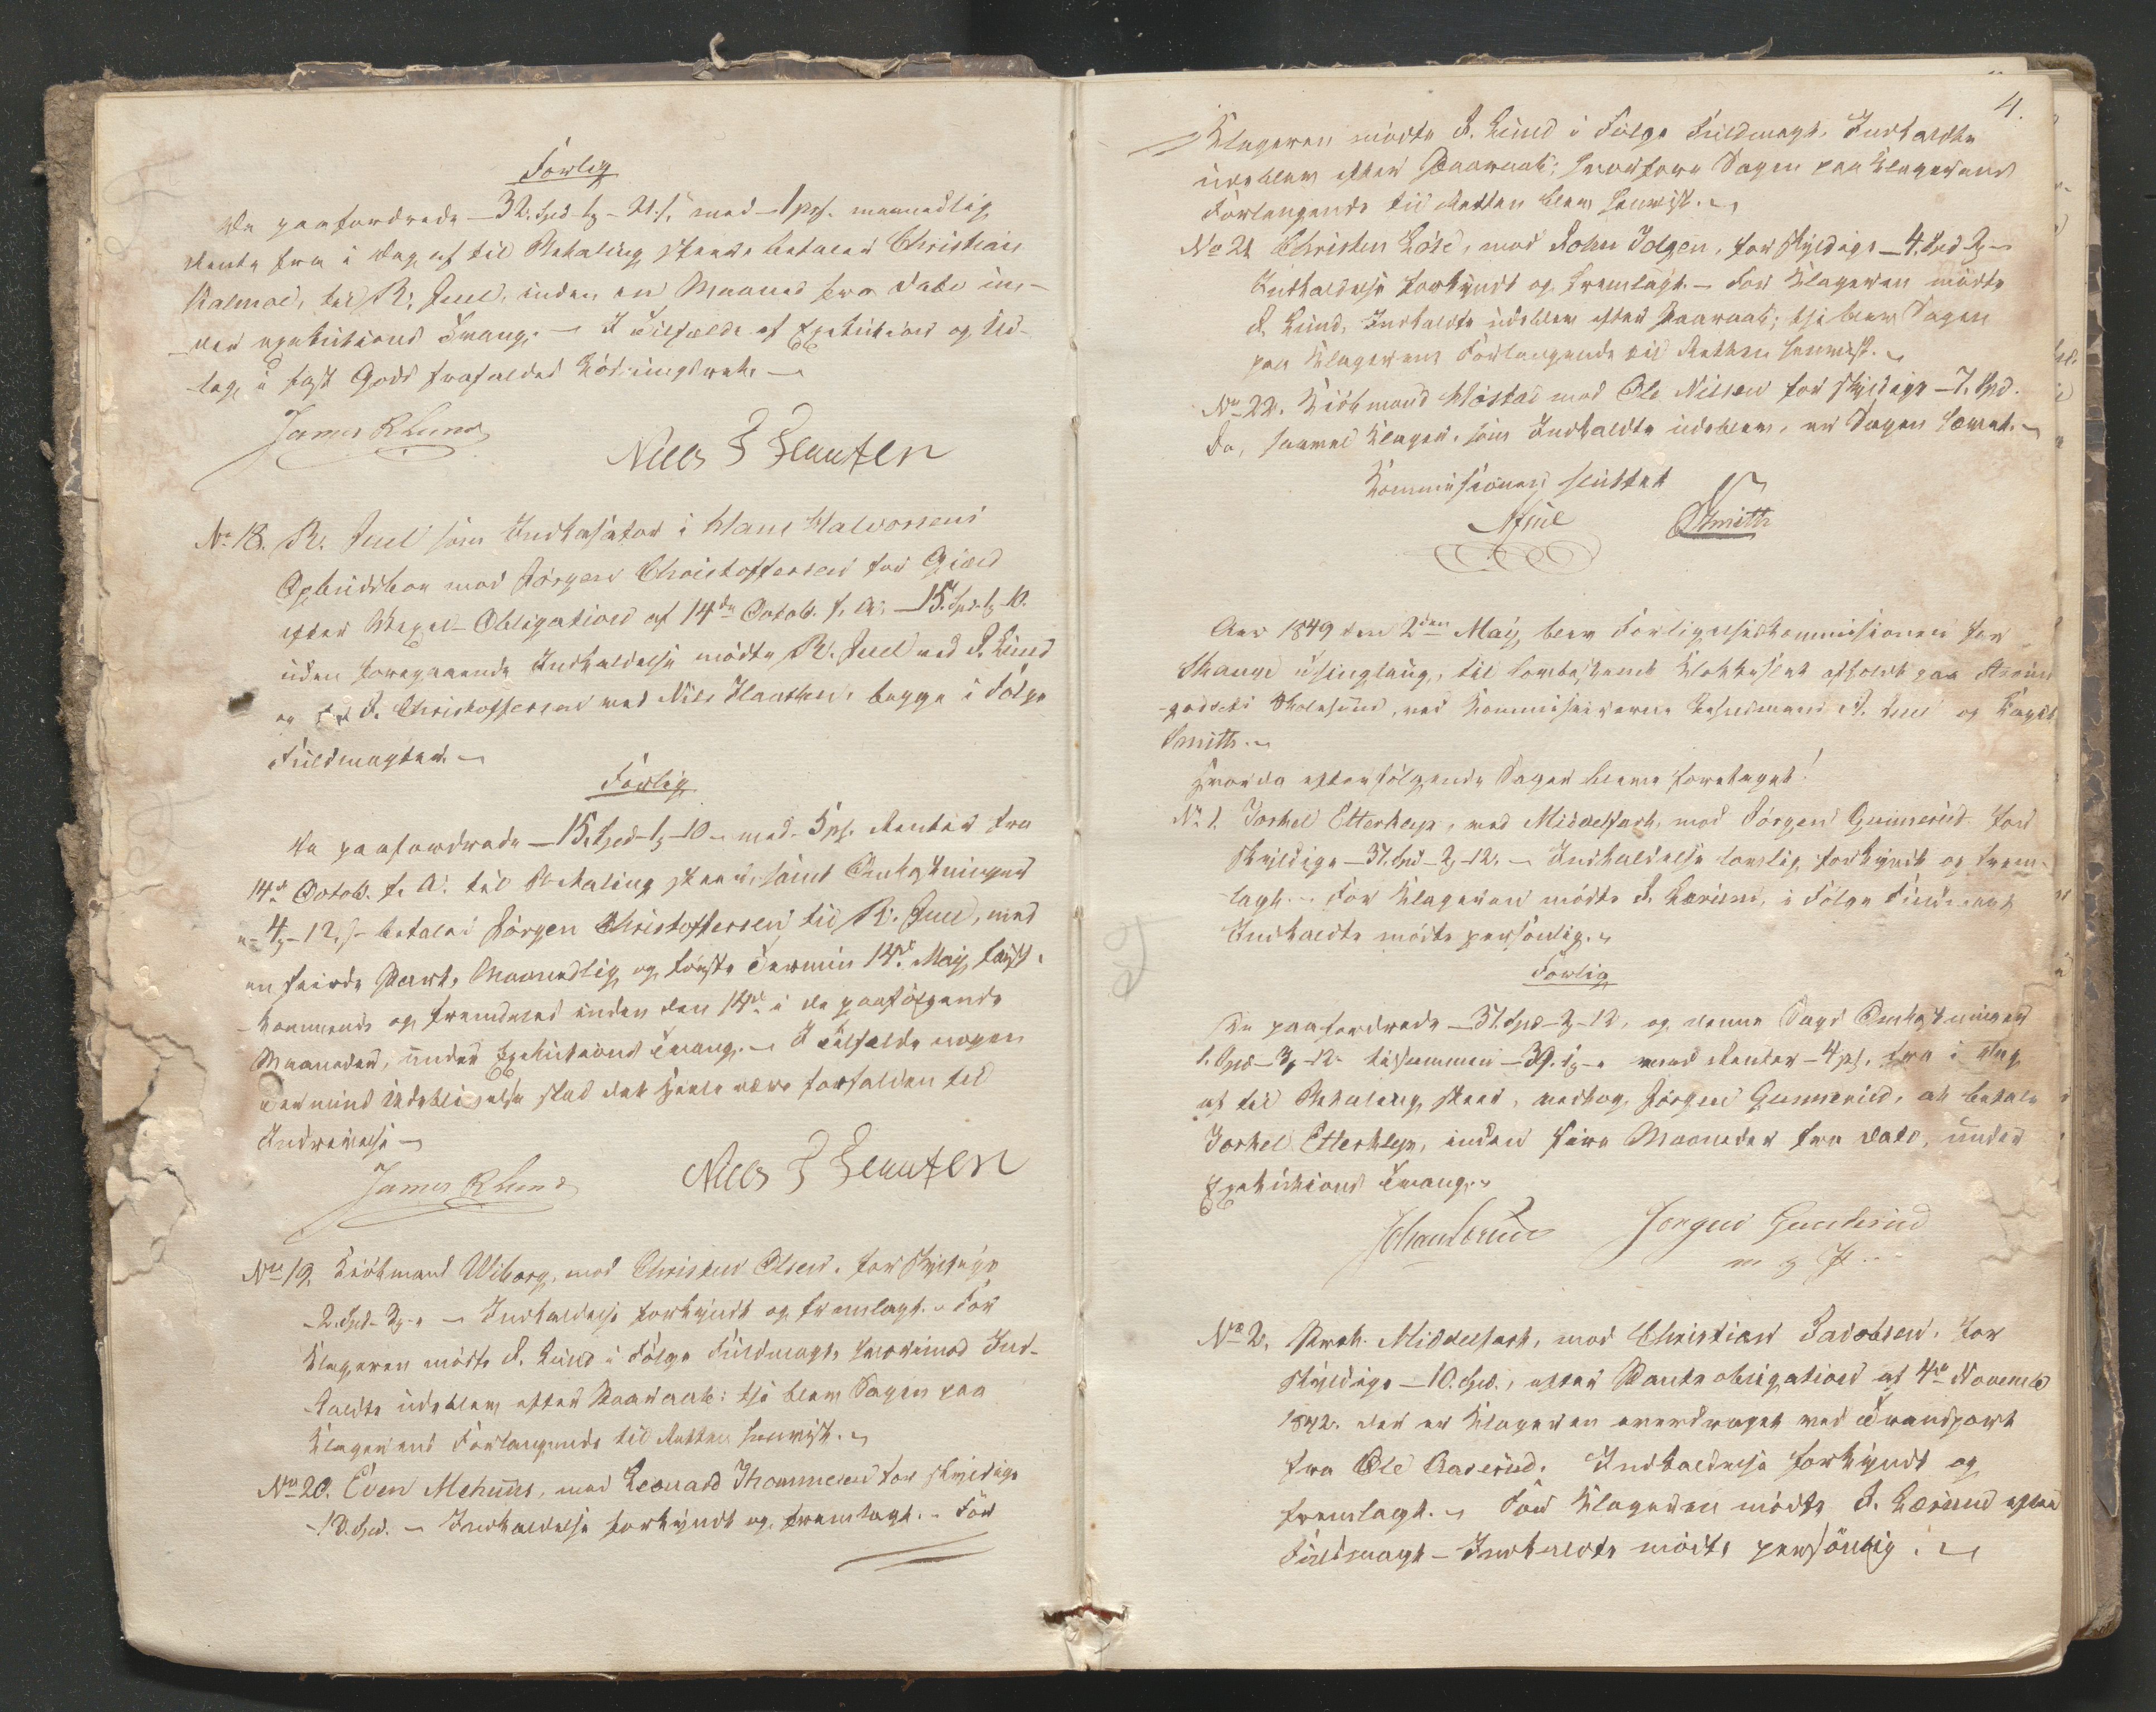 Forlig
De paafordrede – 32. Spd – 1 – 21 s, med – 1 pct. maanedlig
Rente fra i Dag af til Betaling skeer, betaler Christian
Kalmoe, til R. Juel, inden en Maaned fra Dato un-
der Exekutions Tvang. – I Tilfælde af Exekution og Ud-
læg i fast Gods frafaldes Løsningsret. –
James R Lund
Niels J Haufen
No 18. R. Juel som Indkasator i Hans Halvorsens
Opbudsboe mod Jørgen Christoffersen for Gjæld
efter Vexel-Obligation af 14de Octob. f. A. – 15. Spd. – 10.
uden foregaaende Indkaldelse mødte R. Juel ved J. Lund
og J. Christoffersen ved Niels Haathen, begge i Følge
Fuldmagter. –
Forlig
De paafordrede – 15. Spd – 1 – 10 – med 5 pc. Renter fra
14de Octob. f. A. til Betaling skeer, samt Omkostninger
4 – 12 s – betaler Jørgen Christoffersen til R. Juel, med
en fjerde Part, Maanedlig og første Termin 14de Maij først-
kommende og fremdeles inden den 14de i de paafølgende
Maaneder, under Exekutions Tvang. – I Tilfælde nogen
Termins Udeblivelse skal det Hele være forfalden til
Inddrivelse –
James R Lund
Niels J Haufen
No 19. Kjøbmand Wiborg, mod Christen Olsen, for skyldige
– 2. Spd – 3 – – Indkaldelse forkyndt og fremlagt. – For
Klageren mødte J. Lund i Følge Fuldmagt, hvorimod Ind-
kaldte udeblev efter Paaraab; thi blev Sagen paa
Klagerens Forlangende til Retten henviist. –
No 20. Even Mehuus, mod Leonard Thommesen for skyldige
– 10. Spd. – Indkaldelse forkyndt og fremlagt. – For
4.
Klageren mødte J. Lund i Følge Fuldmagt, Indkaldte
udeblev efter Paaraab; hvorfore Sagen paa Klagerens
Forlangende til Retten blev henviist. –
No 21 Christen Lote, mod John Jolgen, for skyldige – 4. Spd. 2 –
Indkaldelse forkyndt og fremlagt. – For Klageren mødte
J. Lund, Indkaldte udeblev efter Paaraab; thi blev Sagen
paa Klagerens Forlangende til Retten henviist. –
No 22. Kjøbmand Høstad mod Ole Nilsen for skyldige – 7. Spd.
Da, saavel Klager, som Indkaldte udeblev, er Sagen hævet. –
Kommissionen sluttet
RJuel
Smith
Aar 1849 den 2den Maij blev Forligelseskommissionen for
Thinglaug, til lovbestemt Klokkeslet afholdt paa
ved Kommissairerne Lehnsmand R. Juel og
Smith. –
Hvorda efterfølgende Sager bleve foretaget!
No 1. Torkel Etterklep, ved Middelfart, mod Jørgen Gunnerud for
skyldige – 37. Spd – 2 – 12. – Indkaldelse lovlig forkyndt og frem-
lagt. – For Klageren mødte J. Lærum, i Følge Fuldmagt
Indkaldte mødte personlig. –
Forlig
De paafordrede – 37. Spd – 2 – 12, og denne Sags Omkostninger
1. Spd – 3 – 12 tilsammen – 39. 1 – med Renter – 4 pc. fra i Dag
af til Betaling skeer, vedtog Jørgen Gunnerud, at betale
Torkel Etterklep, inden fire Maaneder fra Dato, under
Exekutions Tvang. –
Jørgen Gunderud
m p P
No 2. Prok. Middelfart, mod Christian Jacobsen, for
skyldige – 10. Spd., efter Panteobligation af 4de Novemb
1842. der er Klageren overdraget ved Transport
fra Ole Aaserud. Indkaldelse forkyndt og
fremlagt. – For Klageren mødte J. Lærum efter
Fuldmagt – Indkaldte mødte personlig. –